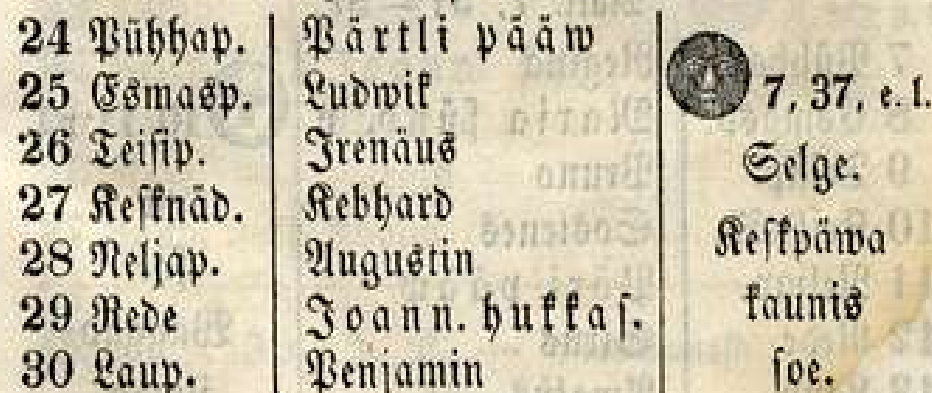 24 Pühhap. Pärtli pääw
25 Esmasp. Ludwik 7, 37, e. l.
26 Teisip. Irenäus Selge.
27 Kesknäd. Kebhard Keskpäwa
28 Neljap. Augustin
29 Rede Joann. hukkas. kaunis
30 Laup. Penjamin soe.